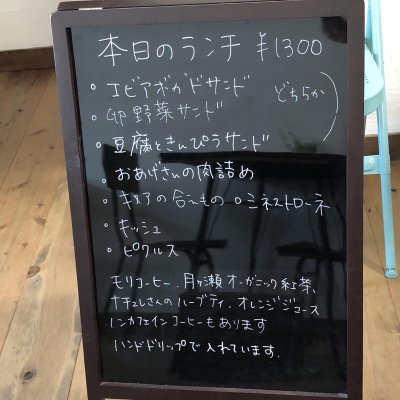 本日のランチ ¥1300
・エビアボカドサンド
・卵野菜サンド
どちらか
・豆腐ときんぴらサンド
・おあげさんの肉詰め
・キヌアの合えもの ・ミネストローネ
・キッシュ
・ピクルス
モリコーヒー、月ヶ瀬オーガニック紅茶、
ナチュレさんのハーブティ、オレンジジュース
ノンカフェインコーヒーもあります
ハンドドリップで入れています.